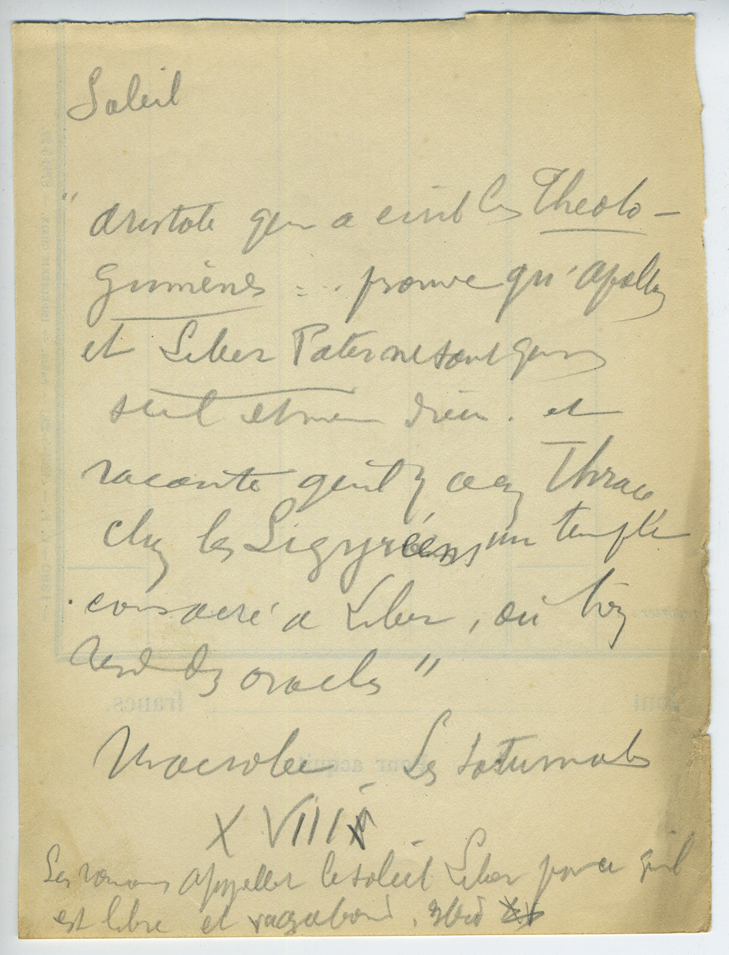 Soleil
" Aristote qui a écrit les Theolo-
gumènes : .. prouve qu'Apollon
et Liber Pater ne sont qu'un
seul et même dieu. et
raconte qu'il y a en Thrace
chez les Ligyréens un temple
consacré a Liber, où l'on
rend des oracles "
Macrobe Les Saturnales
XVIII
Les romains appellent le soleil Liber parce qu'il
est libre et vagabond. Ibid
francs.
Pour acquit